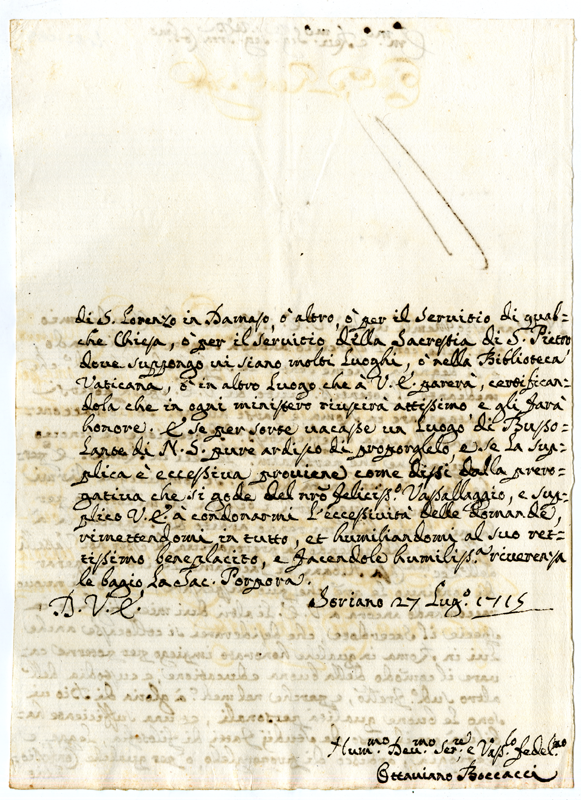 di S. Lorenzo in Damaso, ò altro, ò per il Servitio di qual=
che Chiesa, ò per il servitio della Sacrestia di S. Pietro
dove suppongo vi siano molti Luoghi, ò nella Biblioteca
Vaticana, ò in altro Luogo che à V. E. parerà, certifican=
dola che in ogni ministero riuscirà attissimo e gli farà
honore. E se per sorte vacasse un Luogo di Busso=
lante di N. S. pure ardisco di proporglelo, e se la sup=
plica è eccessiva proviene come dissi dalla prero=
gativa che si gode del nro feliciss.º Vassallaggio, e sup=
plico V. E. à condonarmi l'eccessività delle domande,
rimettendomi in tutto, et humiliandomi al suo ret=
tissimo beneplacito, e facendole humiliss.ª riverenza
le bagio la Sac. Porpora.
D. V. E.
Soriano 27 Lug.º 1715
Hum.mo Dev.mo Ser.re e Vass.lo fedel.mo
Ottaviano Boccacci